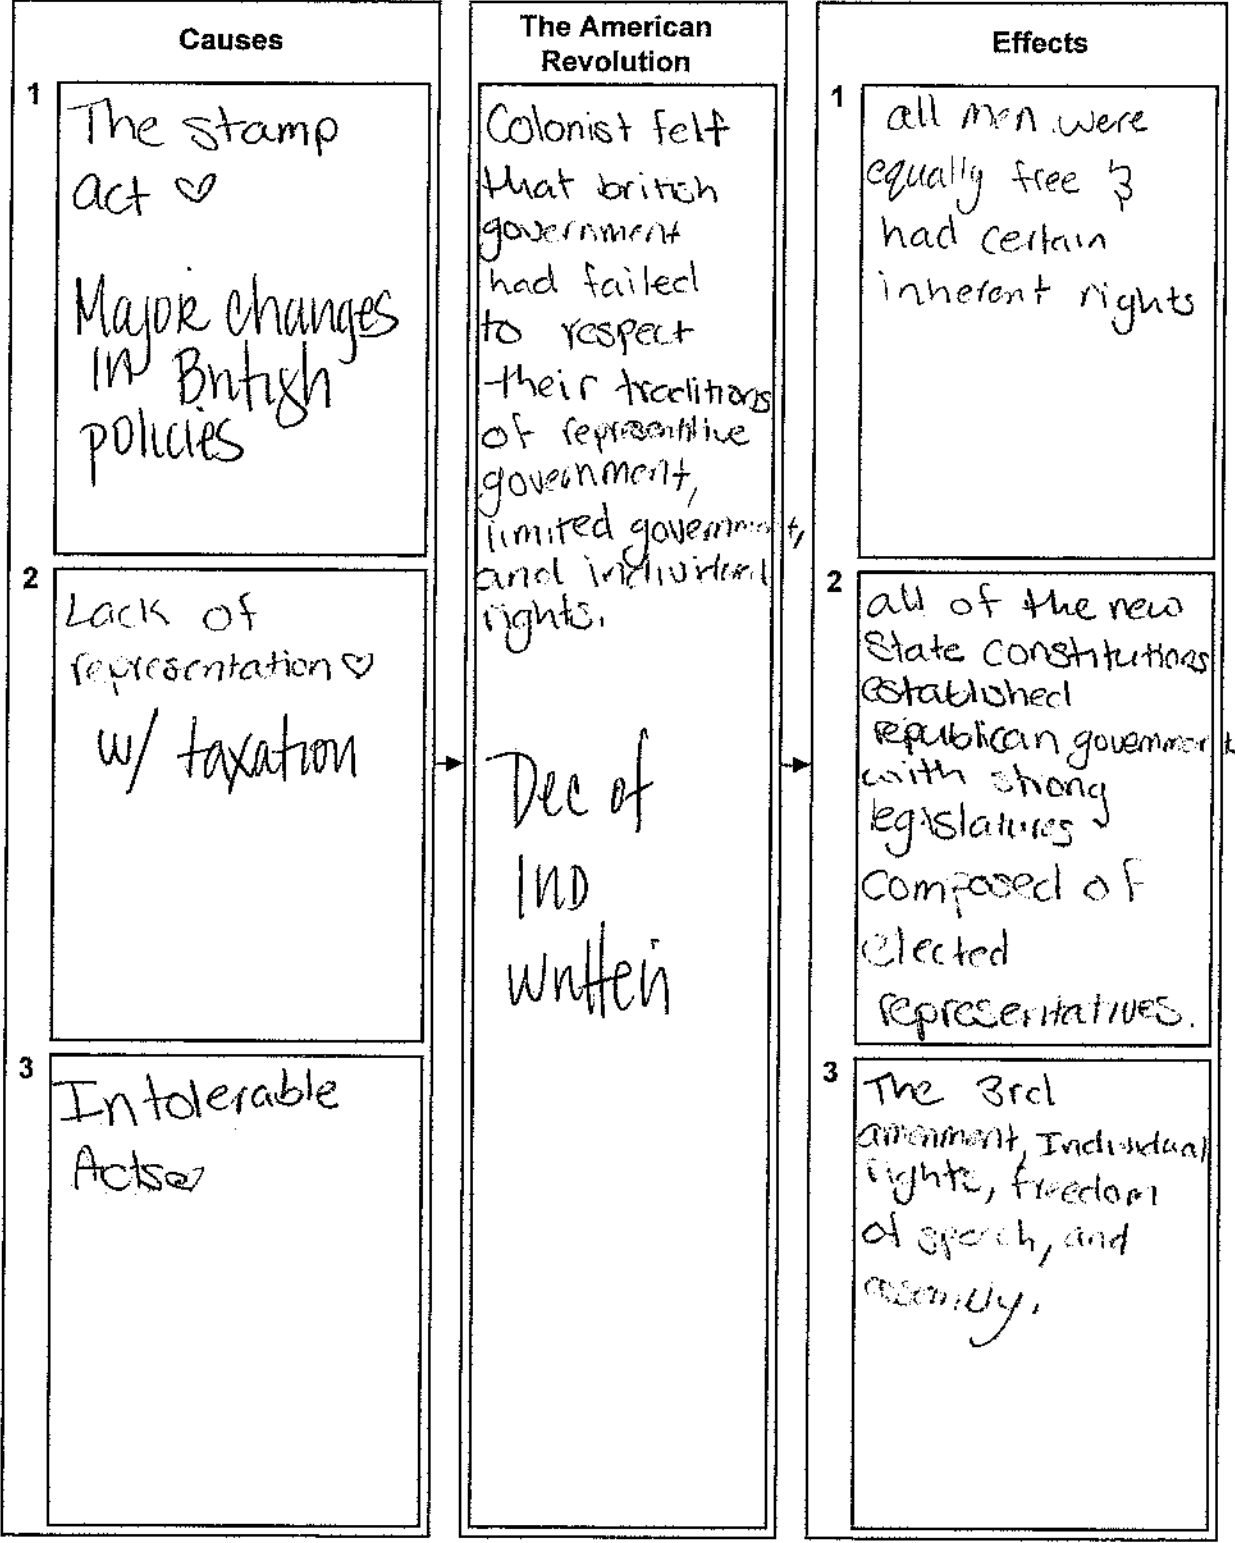 Causes
1
The stamp
act ♡
Major changes
in British
policies
2
Lack of
representation ♡
w/ taxation
3
Intolerable
Acts♡
The American
Revolution
Colonist felt
that british
government
had failed
to respect
their traditions
of representitive
government,
limited government,
and individual
rights.
Dec of
IND
written
Effects
1
all men were
equally free &
had certain
inherent rights
2
all of the new
State constitutions
established
republican government
with strong
legislatures
composed of
elected
representatives.
3
The 3rd
amenment, Individual
rights, freedom
of speech, and
assembly.